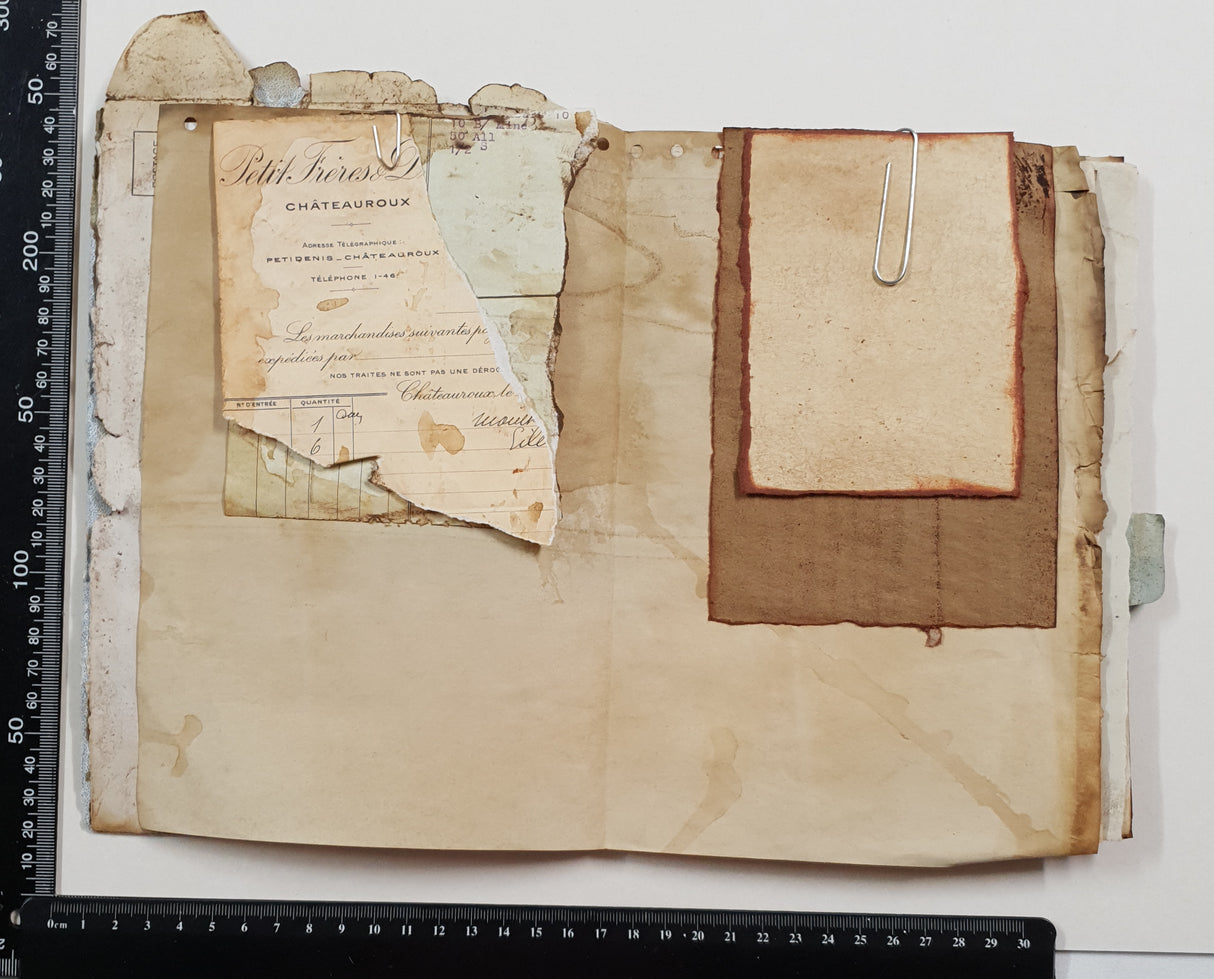 Petit Frères & D
CHÂTEAUROUX
ADRESSE TÉLÉGRAPHIQUE:
PETIDENIS_CHÂTEAUROUX
TÉLÉPHONE 1-46
Les marchandises suivantes
expédiées par
NOS TRAITES NE SONT PAS UNE DÉROG
Châteauroux, le
N° D'ENTRÉE QUANTITÉ
1
6
10
30 All
1/2 S
300
70
60
50
40
30
20
10
200
90
80
70
60
50
40
30
20
10
100
90
80
70
60
50
40
30
20
10
0cm 1 2 3 4 5 6 7 8 9 10 11 12 13 14 15 16 17 18 19 20 21 22 23 24 25 26 27 28 29 30